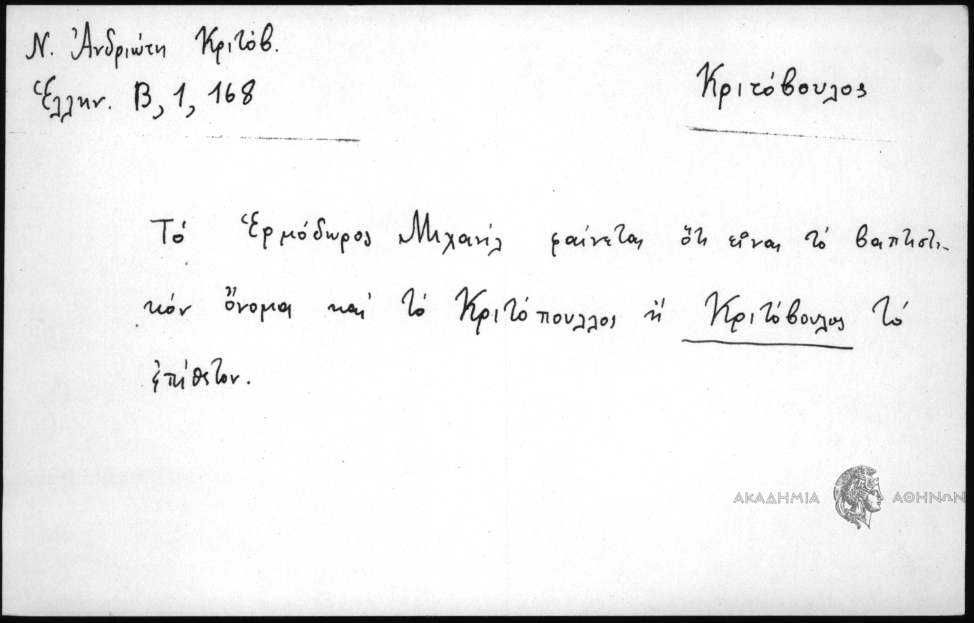 Ν. Ἀνδριώτη Κριτόβ.
Ἑλλην. Β, 1, 168
Κριτόβουλος
Τό Ἑρμόδωρος Μιχαήλ φαίνεται ὅτι εἶναι τό βαπτιστι-
κόν ὄνομα καί τό Κριτόπουλλος ἤ Κριτόβουλος τό
ἐπίθετον.
ΑΚΑΔΗΜΙΑ ΑΘΗΝΩΝ